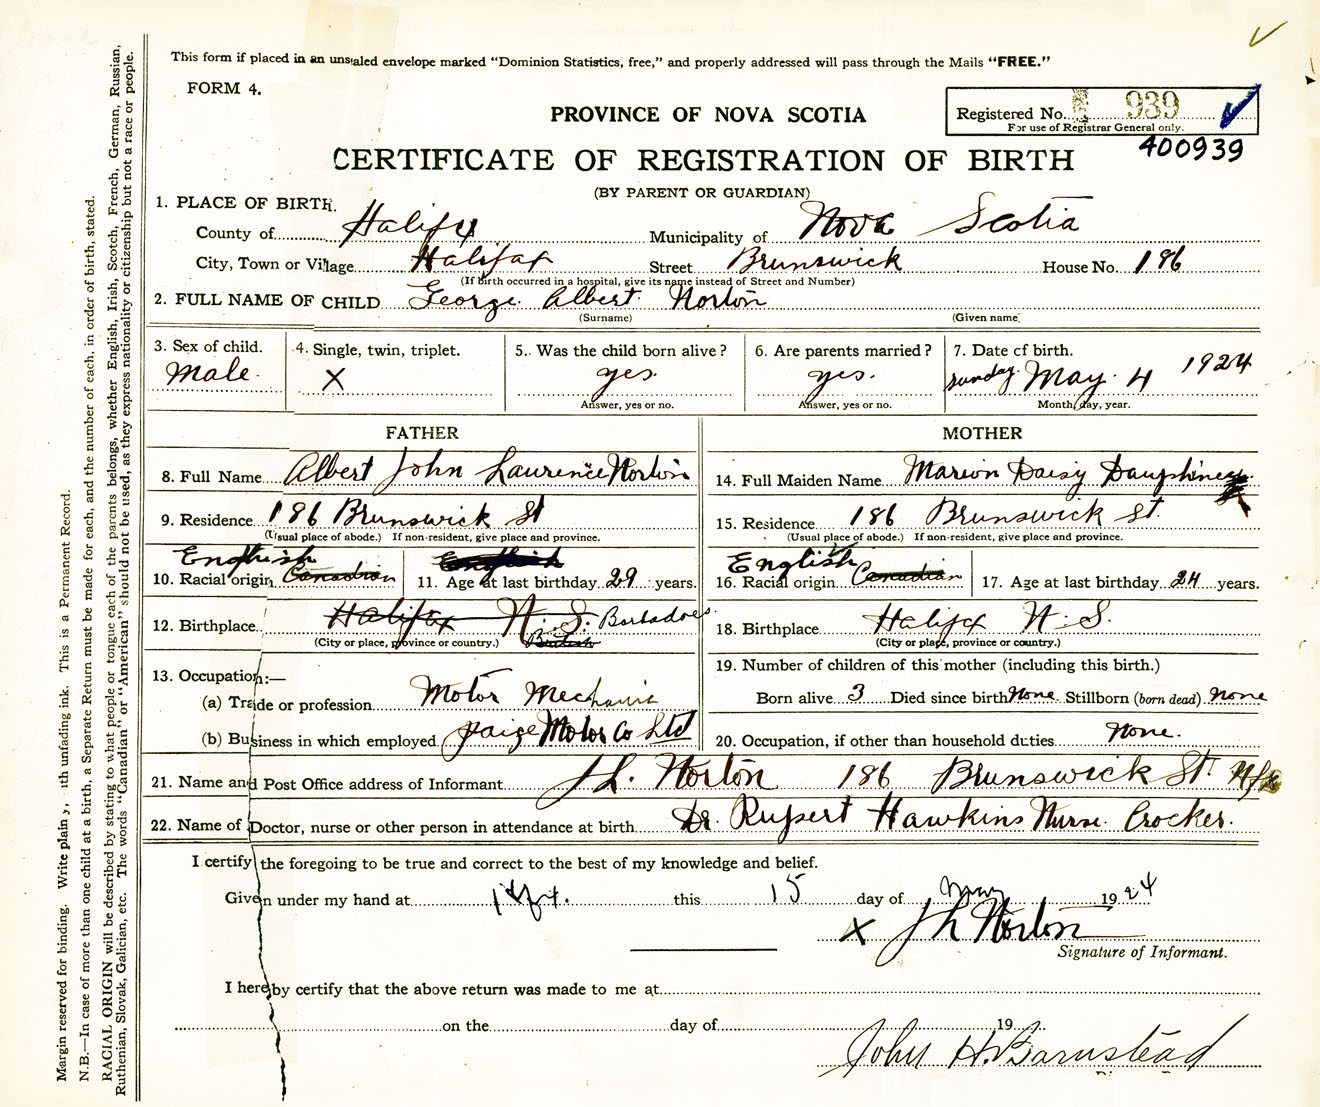 This form if placed in an unsealed envelope marked “Dominion Statistics, free,” and properly addressed will pass through the Mails “FREE.”
FORM 4.
Registered No. 939
For use of Registrar General only.
400939
PROVINCE OF NOVA SCOTIA
CERTIFICATE OF REGISTRATION OF BIRTH
(BY PARENT OR GUARDIAN)
1. PLACE OF BIRTH.
County of Halifx Municipality of Nova Scotia
City, Town or Village Halifax Street Brunswick House No. 186
(If birth occurred in a hospital, give its name instead of Street and Number)
2. FULL NAME OF CHILD George Albert Norton
(Surname) (Given name)
3. Sex of child. 4. Single, twin, triplet. 5. Was the child born alive? 6. Are parents married? 7. Date of birth.
Male X yes. yes. Sunday May 4 1924
Answer, yes or no. Answer, yes or no. Month, day, year.
FATHER MOTHER
8. Full Name Albert John Laurence Norton 14. Full Maiden Name Marion Daisy Dauphinee
9. Residence 186 Brunswick St 15. Residence 186 Brunswick St.
(Usual place of abode.) If non-resident, give place and province. (Usual place of abode.) If non-resident, give place and province.
English English English
10. Racial origin Canadian 11. Age at last birthday 29 years. 16. Racial origin Canadian 17. Age at last birthday 24 years.
12. Birthplace Halifax N.S. Barbadoes 18. Birthplace Halifax N.S.
(City or place, province or country.) British (City or place, province or country.)
13. Occupation:—
(a) Trade or profession Motor Mechanic
(b) Business in which employed Paige Motor Co Ltd
19. Number of children of this mother (including this birth.)
Born alive 3 Died since birth None. Stillborn (born dead) None
20. Occupation, if other than household duties None.
21. Name and Post Office address of Informant JL. Norton 186 Brunswick St. Hfx
22. Name of Doctor, nurse or other person in attendance at birth Dr. Rupert Hawkins Nurse Crocker.
I certify the foregoing to be true and correct to the best of my knowledge and belief.
Given under my hand at this 15 day of May 1924
X JL Norton
Signature of Informant.
I hereby certify that the above return was made to me at
on the day of 19
John H. Barnstead
Margin reserved for binding. Write plainly, with unfading ink. This is a Permanent Record.
N.B.—In case of more than one child at a birth, a Separate Return must be made for each, and the number of each, in order of birth, stated.
RACIAL ORIGIN will be described by stating to what people or tongue each of the parents belongs, whether English, Irish, Scotch, French, German, Russian,
Ruthenian, Slovak, Galician, etc. The words “Canadian” or “American” should not be used, as they express nationality or citizenship but not a race or people.